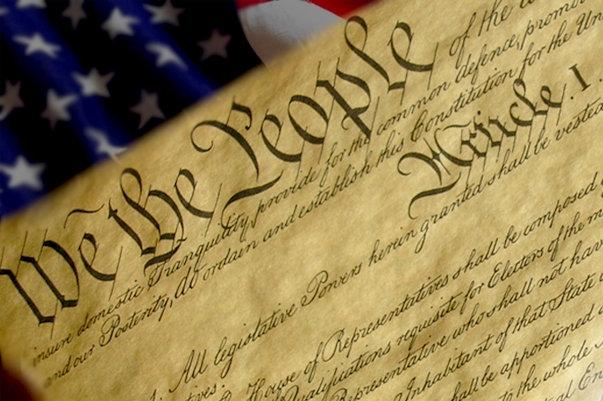 We the People of the
insure domestic Tranquility, provide for the common defence, promo
and our Posterity, do ordain and establish this Constitution for the Un
Article. I.
1. All legislative Powers herein granted shall be vested
House of Representatives shall be composed
Qualifications requisite for Electors of the m
Representative who shall not hav
Inhabitant of that State
shall be apportioned
to the whole